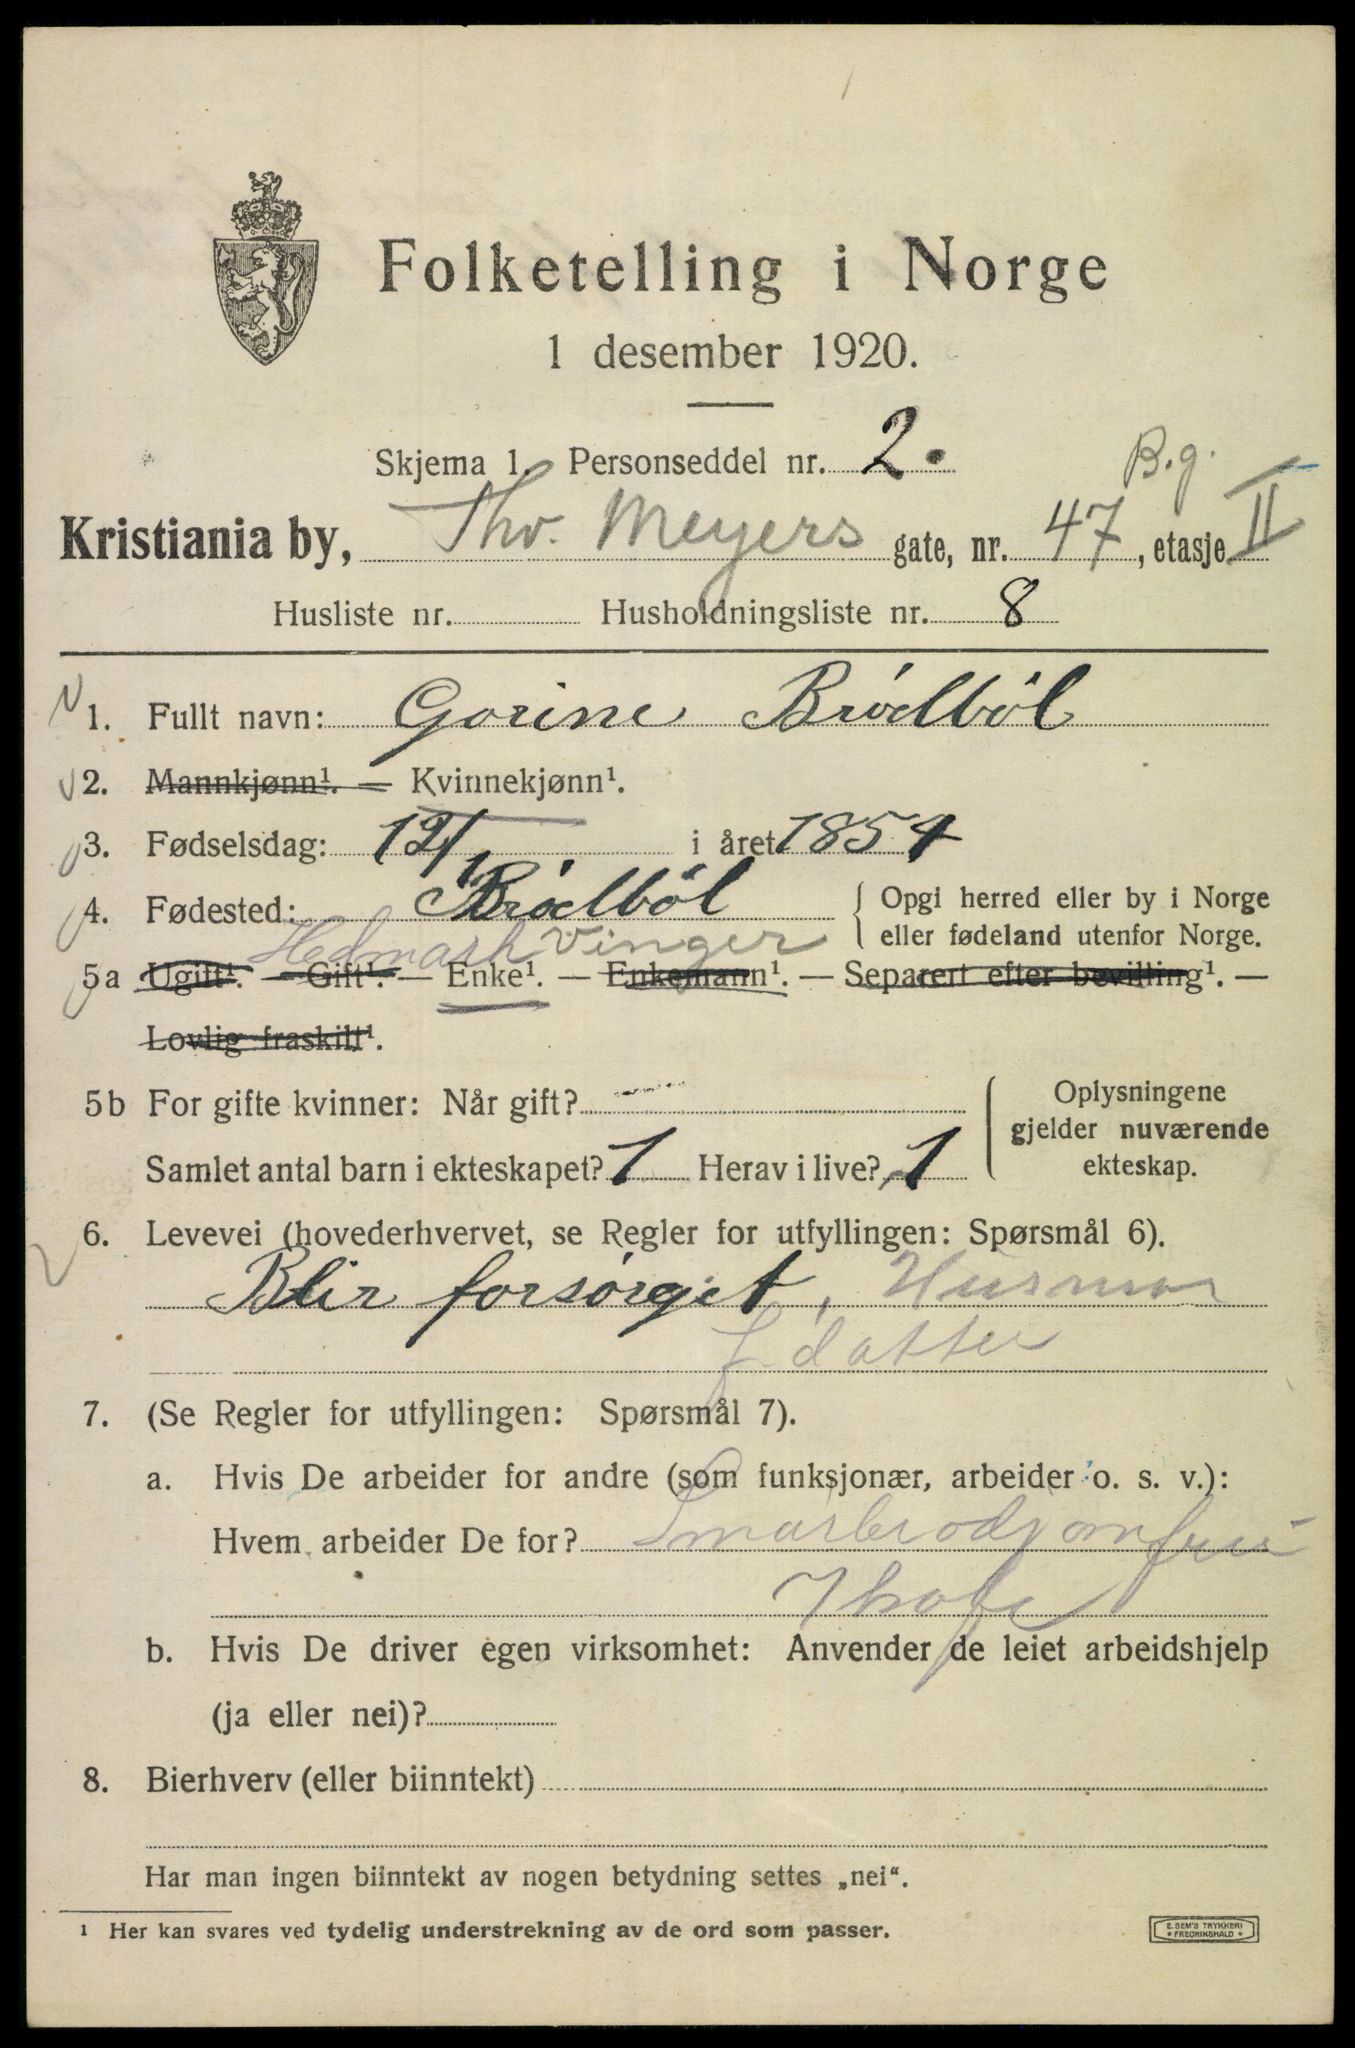 Folketelling i Norge
1 desember 1920.
Skjema 1. Personseddel nr. 2.
B.g.
Kristiania by, Thv. Meyers gate, nr. 47, etasje II
Husliste nr. Husholdningsliste nr. 8
1. Fullt navn: Gorine Brödböl
2. Mannkjønn¹. — Kvinnekjønn¹.
3. Fødselsdag: 12/1 i året 1854
4. Fødested: Brödböl { Opgi herred eller by i Norge
Hedmark Vinger eller fødeland utenfor Norge.
5a Ugift¹. — Gift¹. — Enke¹. — Enkemann¹. — Separert efter bevilling¹. —
Lovlig fraskilt¹.
5b For gifte kvinner: Når gift? { Oplysningene
gjelder nuværende
Samlet antal barn i ekteskapet? 1 Herav i live? 1 ekteskap.
6. Levevei (hovederhvervet, se Regler for utfyllingen: Spørsmål 6).
Blir forsörget, Husmor
f datter
7. (Se Regler for utfyllingen: Spørsmål 7).
a. Hvis De arbeider for andre (som funksjonær, arbeider o. s. v.):
Hvem arbeider De for? Smörbrödjomfru
b. Hvis De driver egen virksomhet: Anvender de leiet arbeidshjelp
(ja eller nei)?
8. Bierhverv (eller biinntekt)
Har man ingen biinntekt av nogen betydning settes „nei“.
¹ Her kan svares ved tydelig understrekning av de ord som passer.
E. SEM'S TRYKKERI
* FREDRIKSHALD *